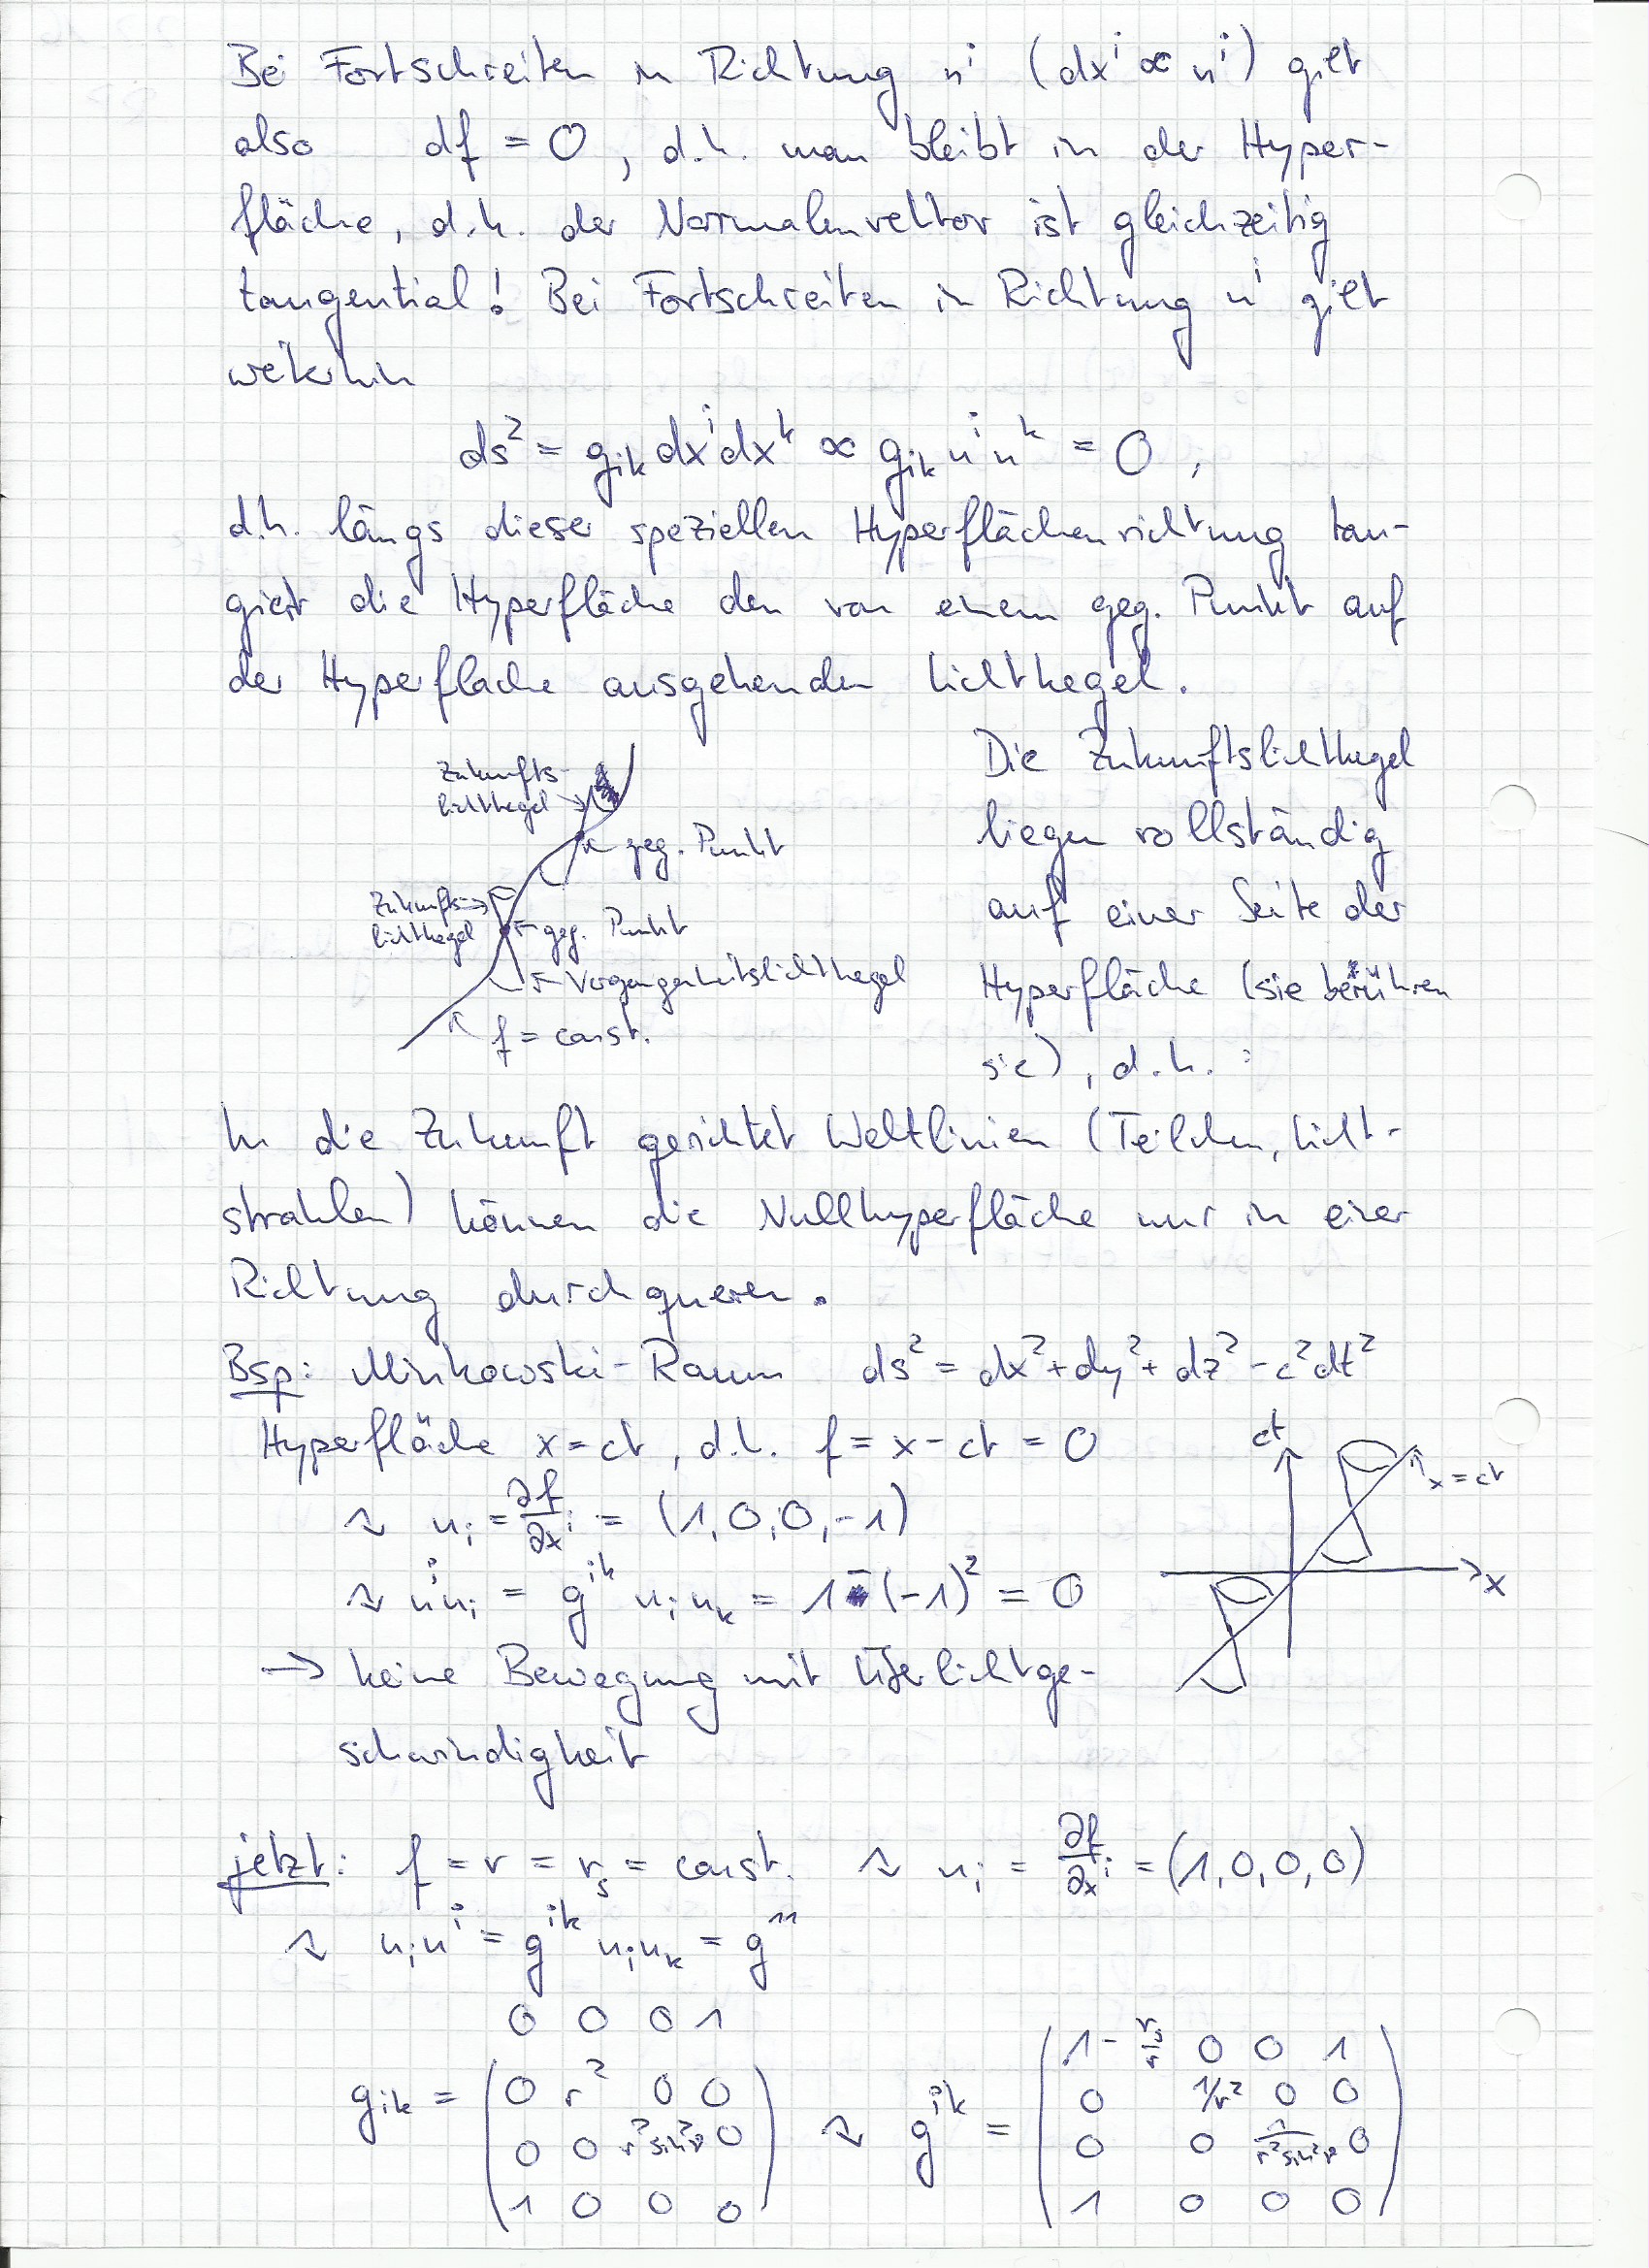 Bei Fortschreiten in Richtung nⁱ (dxⁱ ∝ nⁱ) gilt
also df = 0, d.h. man bleibt in der Hyper-
fläche, d.h. der Normalenvektor ist gleichzeitig
tangential! Bei Fortschreiten in Richtung nⁱ gilt
weiterhin
ds² = g_ik dxⁱ dx^k ∝ g_ik nⁱ n^k = 0 ,
d.h. längs dieser speziellen Hyperflächenrichtung tan-
giert die Hyperfläche den von einem geg. Punkt auf
der Hyperfläche ausgehenden Lichtkegel.
Zukunfts-
lichtkegel →
← geg. Punkt
Zukunfts- →
lichtkegel
← geg. Punkt
← Vergangenheitslichtkegel
f = const.
Die Zukunftslichtkegel
liegen vollständig
auf einer Seite der
Hyperfläche (sie berühren
sie), d.h. :
In die Zukunft gerichtet Weltlinien (Teilchen, Licht-
strahlen) können die Nullhyperfläche nur in einer
Richtung durchqueren.
Bsp: Minkowski-Raum ds² = dx² + dy² + dz² - c²dt²
Hyperfläche x = ct, d.h. f = x - ct = 0
↷ n_i = ∂f/∂xⁱ = (1, 0, 0, -1)
↷ nⁱn_i = g^ik n_i n_k = 1 - (-1)² = 0
→ keine Bewegung mit Überlichtge-
schwindigkeit
ct
x = ct
x
jetzt: f = r = r_s = const. ↷ n_i = ∂f/∂xⁱ = (1, 0, 0, 0)
↷ n_i nⁱ = g^ik n_i n_k = g^11
0 0 0 1
g_ik = (0 r² 0 0
0 0 r²sin²ϑ 0
1 0 0 0)
↷ g^ik = (1 - r_s/r 0 0 1
0 1/r² 0 0
0 0 1/r²sin²ϑ 0
1 0 0 0)